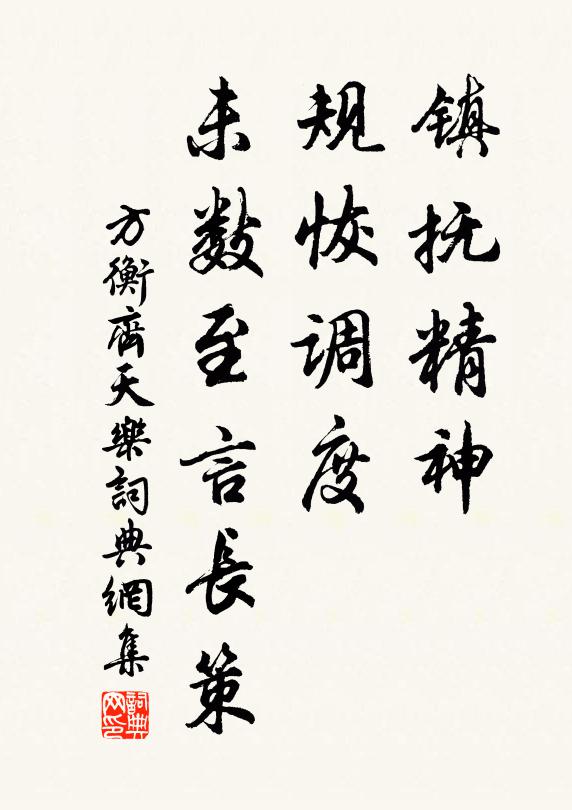 镇抚精神
规恢调度
未数至言長策
方衡齊天樂詞典網集
詞典網印